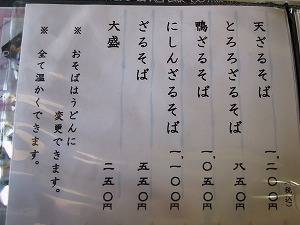 天ざるそば 一、二〇〇円
(税込)
とろろざるそば 八五〇円
鴨ざるそば 一、〇五〇円
にしんざるそば 一、一〇〇円
ざるそば 五五〇円
大盛 二五〇円
※ おそばはうどんに
変更できます。
※ 全て温かくできます。